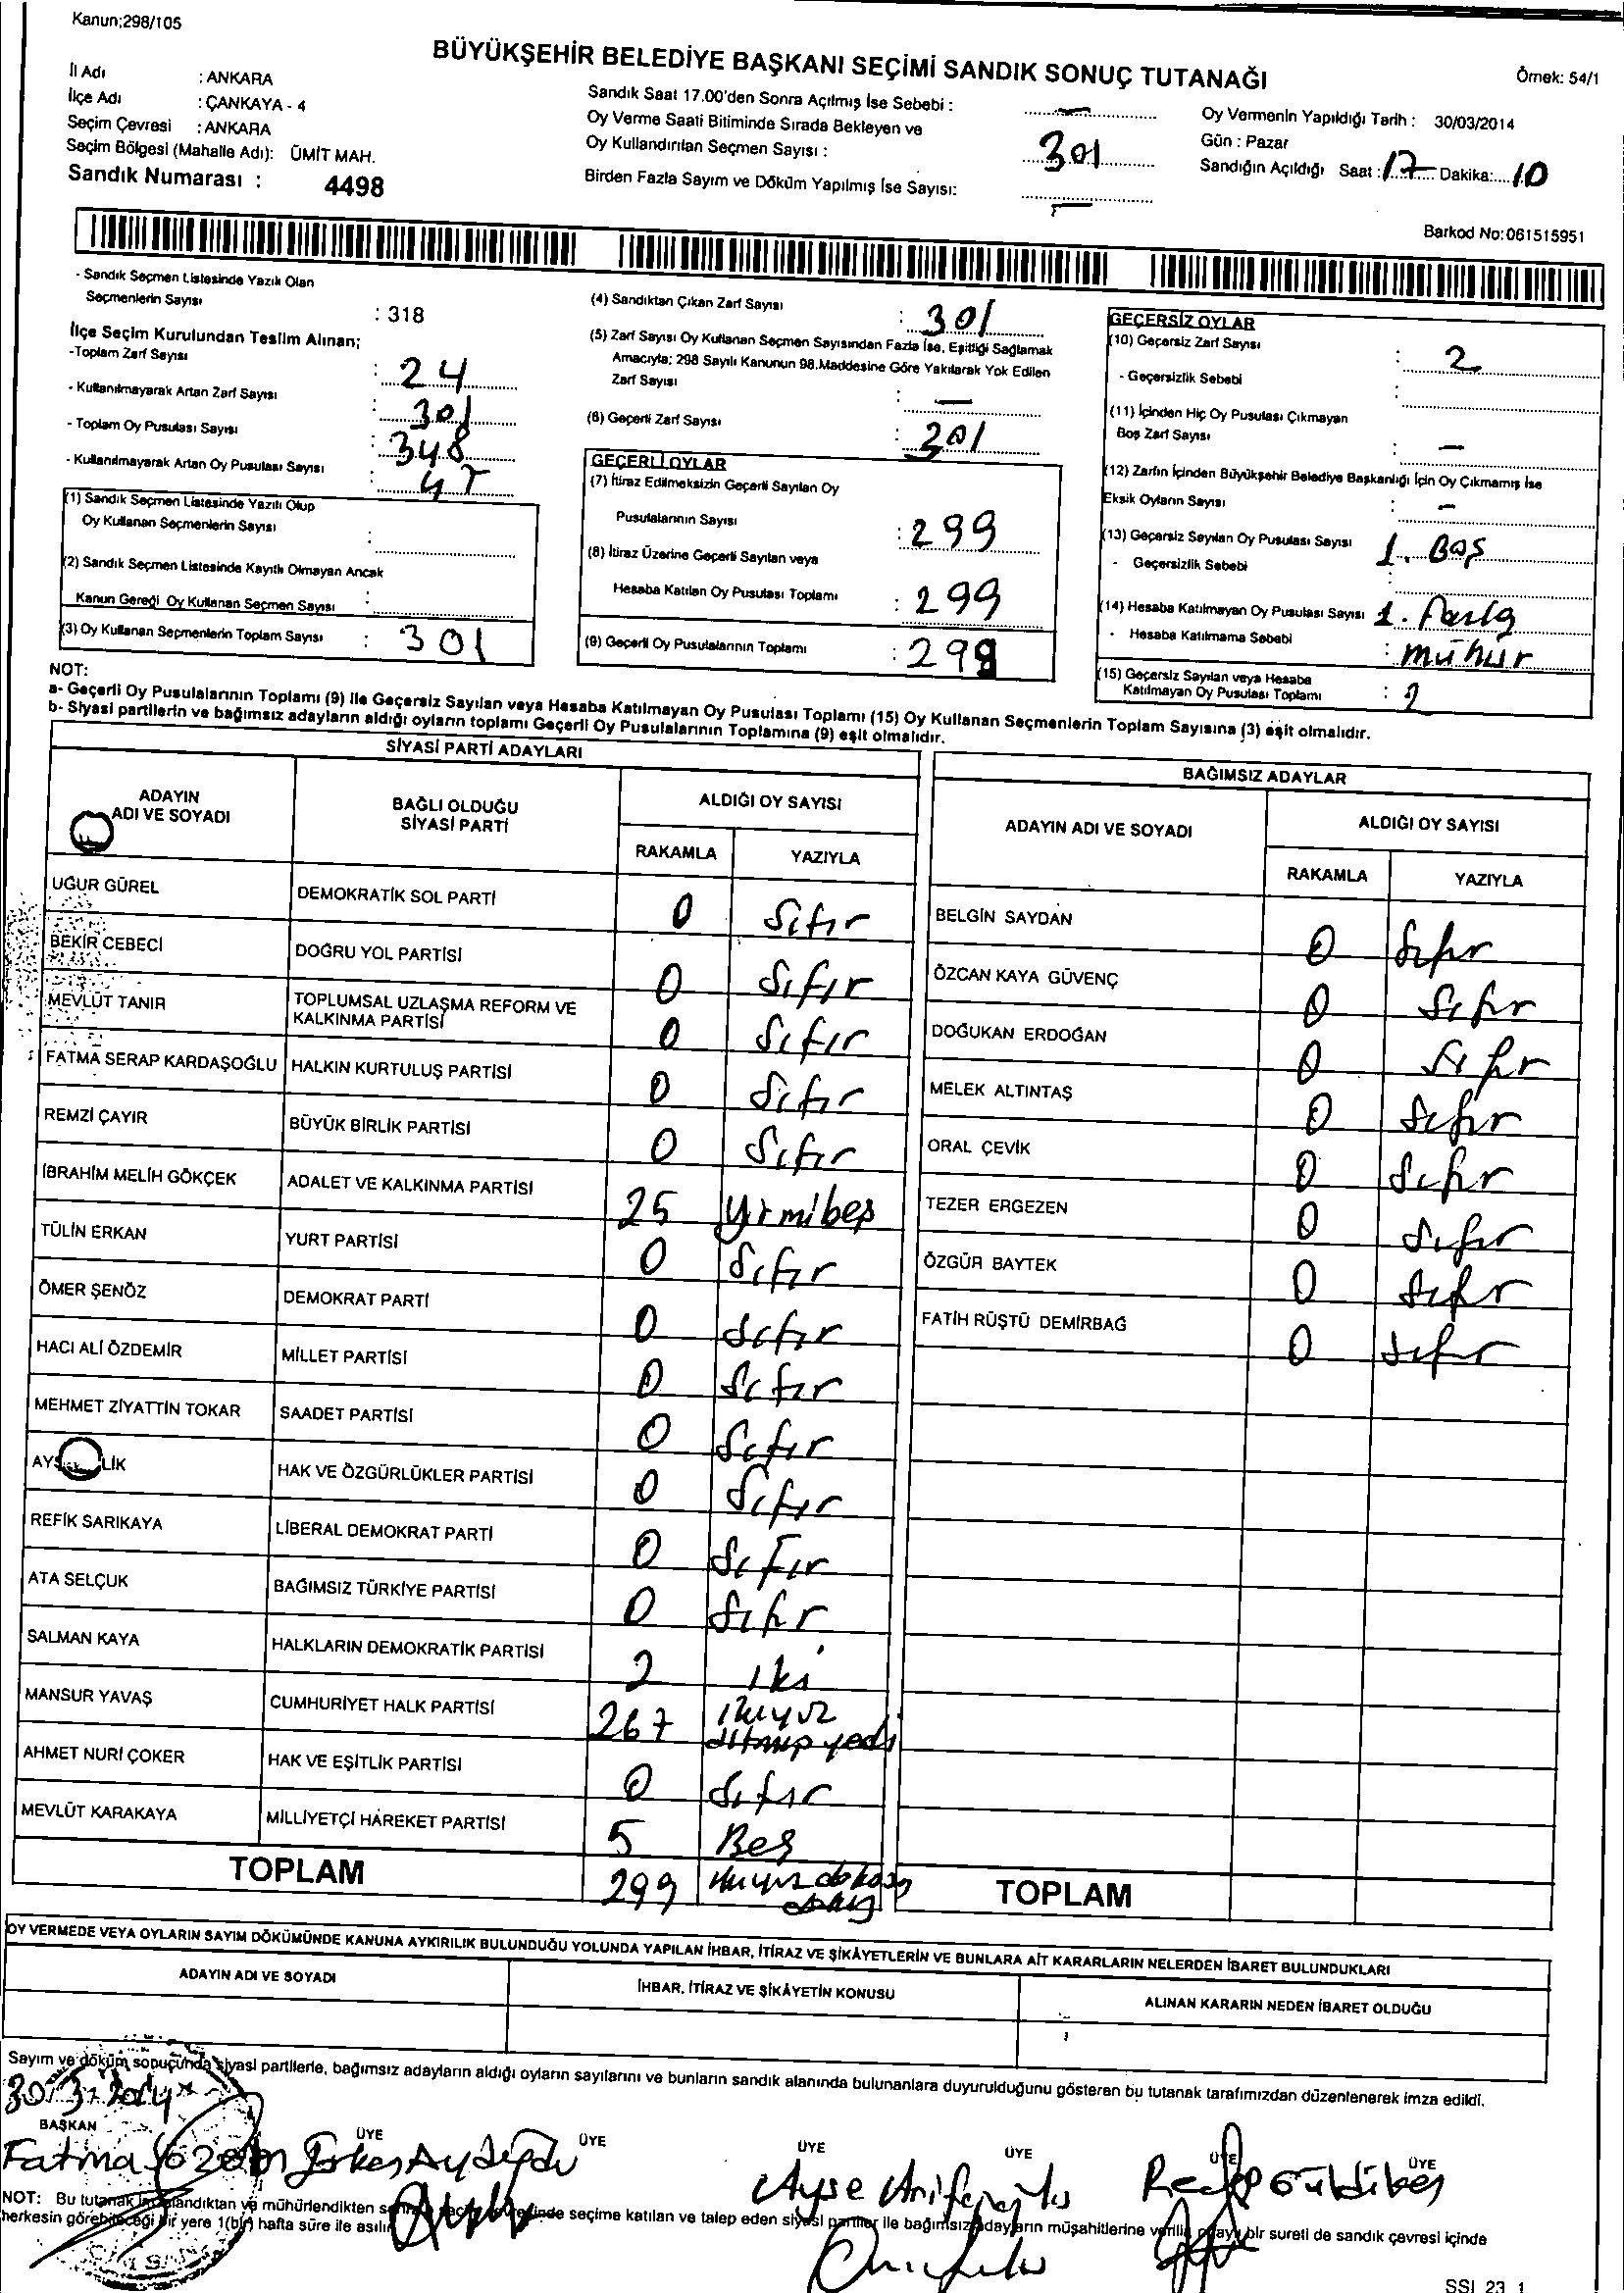 Kanun;298/105
BÜYÜKŞEHİR BELEDİYE BAŞKANI SEÇİMİ SANDIK SONUÇ TUTANAĞI
Örnek: 54/1
İl Adı : ANKARA
İlçe Adı : ÇANKAYA - 4
Seçim Çevresi : ANKARA
Seçim Bölgesi (Mahalle Adı): ÜMİT MAH.
Sandık Numarası : 4498
Sandık Saat 17.00'den Sonra Açılmış İse Sebebi : —
Oy Verme Saati Bitiminde Sırada Bekleyen ve
Oy Kullandırılan Seçmen Sayısı : 301
Birden Fazla Sayım ve Döküm Yapılmış İse Sayısı: —
Oy Vermenin Yapıldığı Tarih : 30/03/2014
Gün : Pazar
Sandığın Açıldığı Saat : 17 Dakika: 10
Barkod No:061515951
- Sandık Seçmen Listesinde Yazılı Olan
Seçmenlerin Sayısı : 318
İlçe Seçim Kurulundan Teslim Alınan;
-Toplam Zarf Sayısı : 24
- Kullanılmayarak Artan Zarf Sayısı : 301
- Toplam Oy Pusulası Sayısı : 348
- Kullanılmayarak Artan Oy Pusulası Sayısı : 47
(1) Sandık Seçmen Listesinde Yazılı Olup
Oy Kullanan Seçmenlerin Sayısı :
(2) Sandık Seçmen Listesinde Kayıtlı Olmayan Ancak
Kanun Gereği Oy Kullanan Seçmen Sayısı :
(3) Oy Kullanan Seçmenlerin Toplam Sayısı : 301
(4) Sandıktan Çıkan Zarf Sayısı : 301
(5) Zarf Sayısı Oy Kullanan Seçmen Sayısından Fazla İse, Eşitliği Sağlamak
Amacıyla; 298 Sayılı Kanunun 98.Maddesine Göre Yakılarak Yok Edilen
Zarf Sayısı : —
(6) Geçerli Zarf Sayısı : 301
GEÇERLİ OYLAR
(7) İtiraz Edilmeksizin Geçerli Sayılan Oy
Pusulalarının Sayısı : 299
(8) İtiraz Üzerine Geçerli Sayılan veya
Hesaba Katılan Oy Pusulası Toplamı : 299
(9) Geçerli Oy Pusulalarının Toplamı : 299
GEÇERSİZ OYLAR
(10) Geçersiz Zarf Sayısı : 2
- Geçersizlik Sebebi :
(11) İçinden Hiç Oy Pusulası Çıkmayan
Boş Zarf Sayısı : —
(12) Zarfın İçinden Büyükşehir Belediye Başkanlığı İçin Oy Çıkmamış İse
Eksik Oyların Sayısı : —
(13) Geçersiz Sayılan Oy Pusulası Sayısı 1. Boş
- Geçersizlik Sebebi :
(14) Hesaba Katılmayan Oy Pusulası Sayısı 1. Fazla
- Hesaba Katılmama Sebebi : mühür
(15) Geçersiz Sayılan veya Hesaba
Katılmayan Oy Pusulası Toplamı : 2
NOT:
a- Geçerli Oy Pusulalarının Toplamı (9) ile Geçersiz Sayılan veya Hesaba Katılmayan Oy Pusulası Toplamı (15) Oy Kullanan Seçmenlerin Toplam Sayısına (3) eşit olmalıdır.
b- Siyasi partilerin ve bağımsız adayların aldığı oyların toplamı Geçerli Oy Pusulalarının Toplamına (9) eşit olmalıdır.
SİYASİ PARTİ ADAYLARI
ADAYIN
ADI VE SOYADI
BAĞLI OLDUĞU
SİYASİ PARTİ
ALDIĞI OY SAYISI
RAKAMLA YAZIYLA
UĞUR GÜREL DEMOKRATİK SOL PARTİ 0 Sıfır
BEKİR CEBECİ DOĞRU YOL PARTİSİ 0 Sıfır
MEVLÜT TANIR TOPLUMSAL UZLAŞMA REFORM VE
KALKINMA PARTİSİ 0 Sıfır
FATMA SERAP KARDAŞOĞLU HALKIN KURTULUŞ PARTİSİ 0 Sıfır
REMZİ ÇAYIR BÜYÜK BİRLİK PARTİSİ 0 Sıfır
İBRAHİM MELİH GÖKÇEK ADALET VE KALKINMA PARTİSİ 25 yirmibeş
TÜLİN ERKAN YURT PARTİSİ 0 Sıfır
ÖMER ŞENÖZ DEMOKRAT PARTİ 0 Sıfır
HACI ALİ ÖZDEMİR MİLLET PARTİSİ 0 Sıfır
MEHMET ZİYATTİN TOKAR SAADET PARTİSİ 0 Sıfır
HAK VE ÖZGÜRLÜKLER PARTİSİ 0 Sıfır
REFİK SARIKAYA LİBERAL DEMOKRAT PARTİ 0 Sıfır
ATA SELÇUK BAĞIMSIZ TÜRKİYE PARTİSİ 0 Sıfır
SALMAN KAYA HALKLARIN DEMOKRATİK PARTİSİ 2 iki
MANSUR YAVAŞ CUMHURİYET HALK PARTİSİ 267 ikiyüz
altmışyedi
AHMET NURİ ÇOKER HAK VE EŞİTLİK PARTİSİ 0 Sıfır
MEVLÜT KARAKAYA MİLLİYETÇİ HAREKET PARTİSİ 5 Beş
TOPLAM 299 ikiyüzdoksan
BAĞIMSIZ ADAYLAR
ADAYIN ADI VE SOYADI
ALDIĞI OY SAYISI
RAKAMLA YAZIYLA
BELGİN SAYDAN 0 Sıfır
ÖZCAN KAYA GÜVENÇ 0 Sıfır
DOĞUKAN ERDOĞAN 0 Sıfır
MELEK ALTINTAŞ 0 Sıfır
ORAL ÇEVİK 0 Sıfır
TEZER ERGEZEN 0 Sıfır
ÖZGÜR BAYTEK 0 Sıfır
FATİH RÜŞTÜ DEMİRBAĞ 0 Sıfır
TOPLAM
OY VERMEDE VEYA OYLARIN SAYIM DÖKÜMÜNDE KANUNA AYKIRILIK BULUNDUĞU YOLUNDA YAPILAN İHBAR, İTİRAZ VE ŞİKÂYETLERİN VE BUNLARA AİT KARARLARIN NELERDEN İBARET BULUNDUKLARI
ADAYIN ADI VE SOYADI
İHBAR, İTİRAZ VE ŞİKÂYETİN KONUSU
ALINAN KARARIN NEDEN İBARET OLDUĞU
Sayım ve döküm sonucunda siyasi partilerle, bağımsız adayların aldığı oyların sayılarını ve bunların sandık alanında bulunanlara duyurulduğunu gösteren bu tutanak tarafımızdan düzenlenerek imza edildi.
30.3.2014
BAŞKAN ÜYE ÜYE ÜYE ÜYE ÜYE ÜYE
Fatma Ayşe Recep
NOT: Bu tutanak seçime katılan ve talep eden siyasi partiler ile bağımsız adayların müşahitlerine bir sureti de sandık çevresi içinde
herkesin görebileceği bir yere 1(bir) hafta süre ile
SSI 23 1